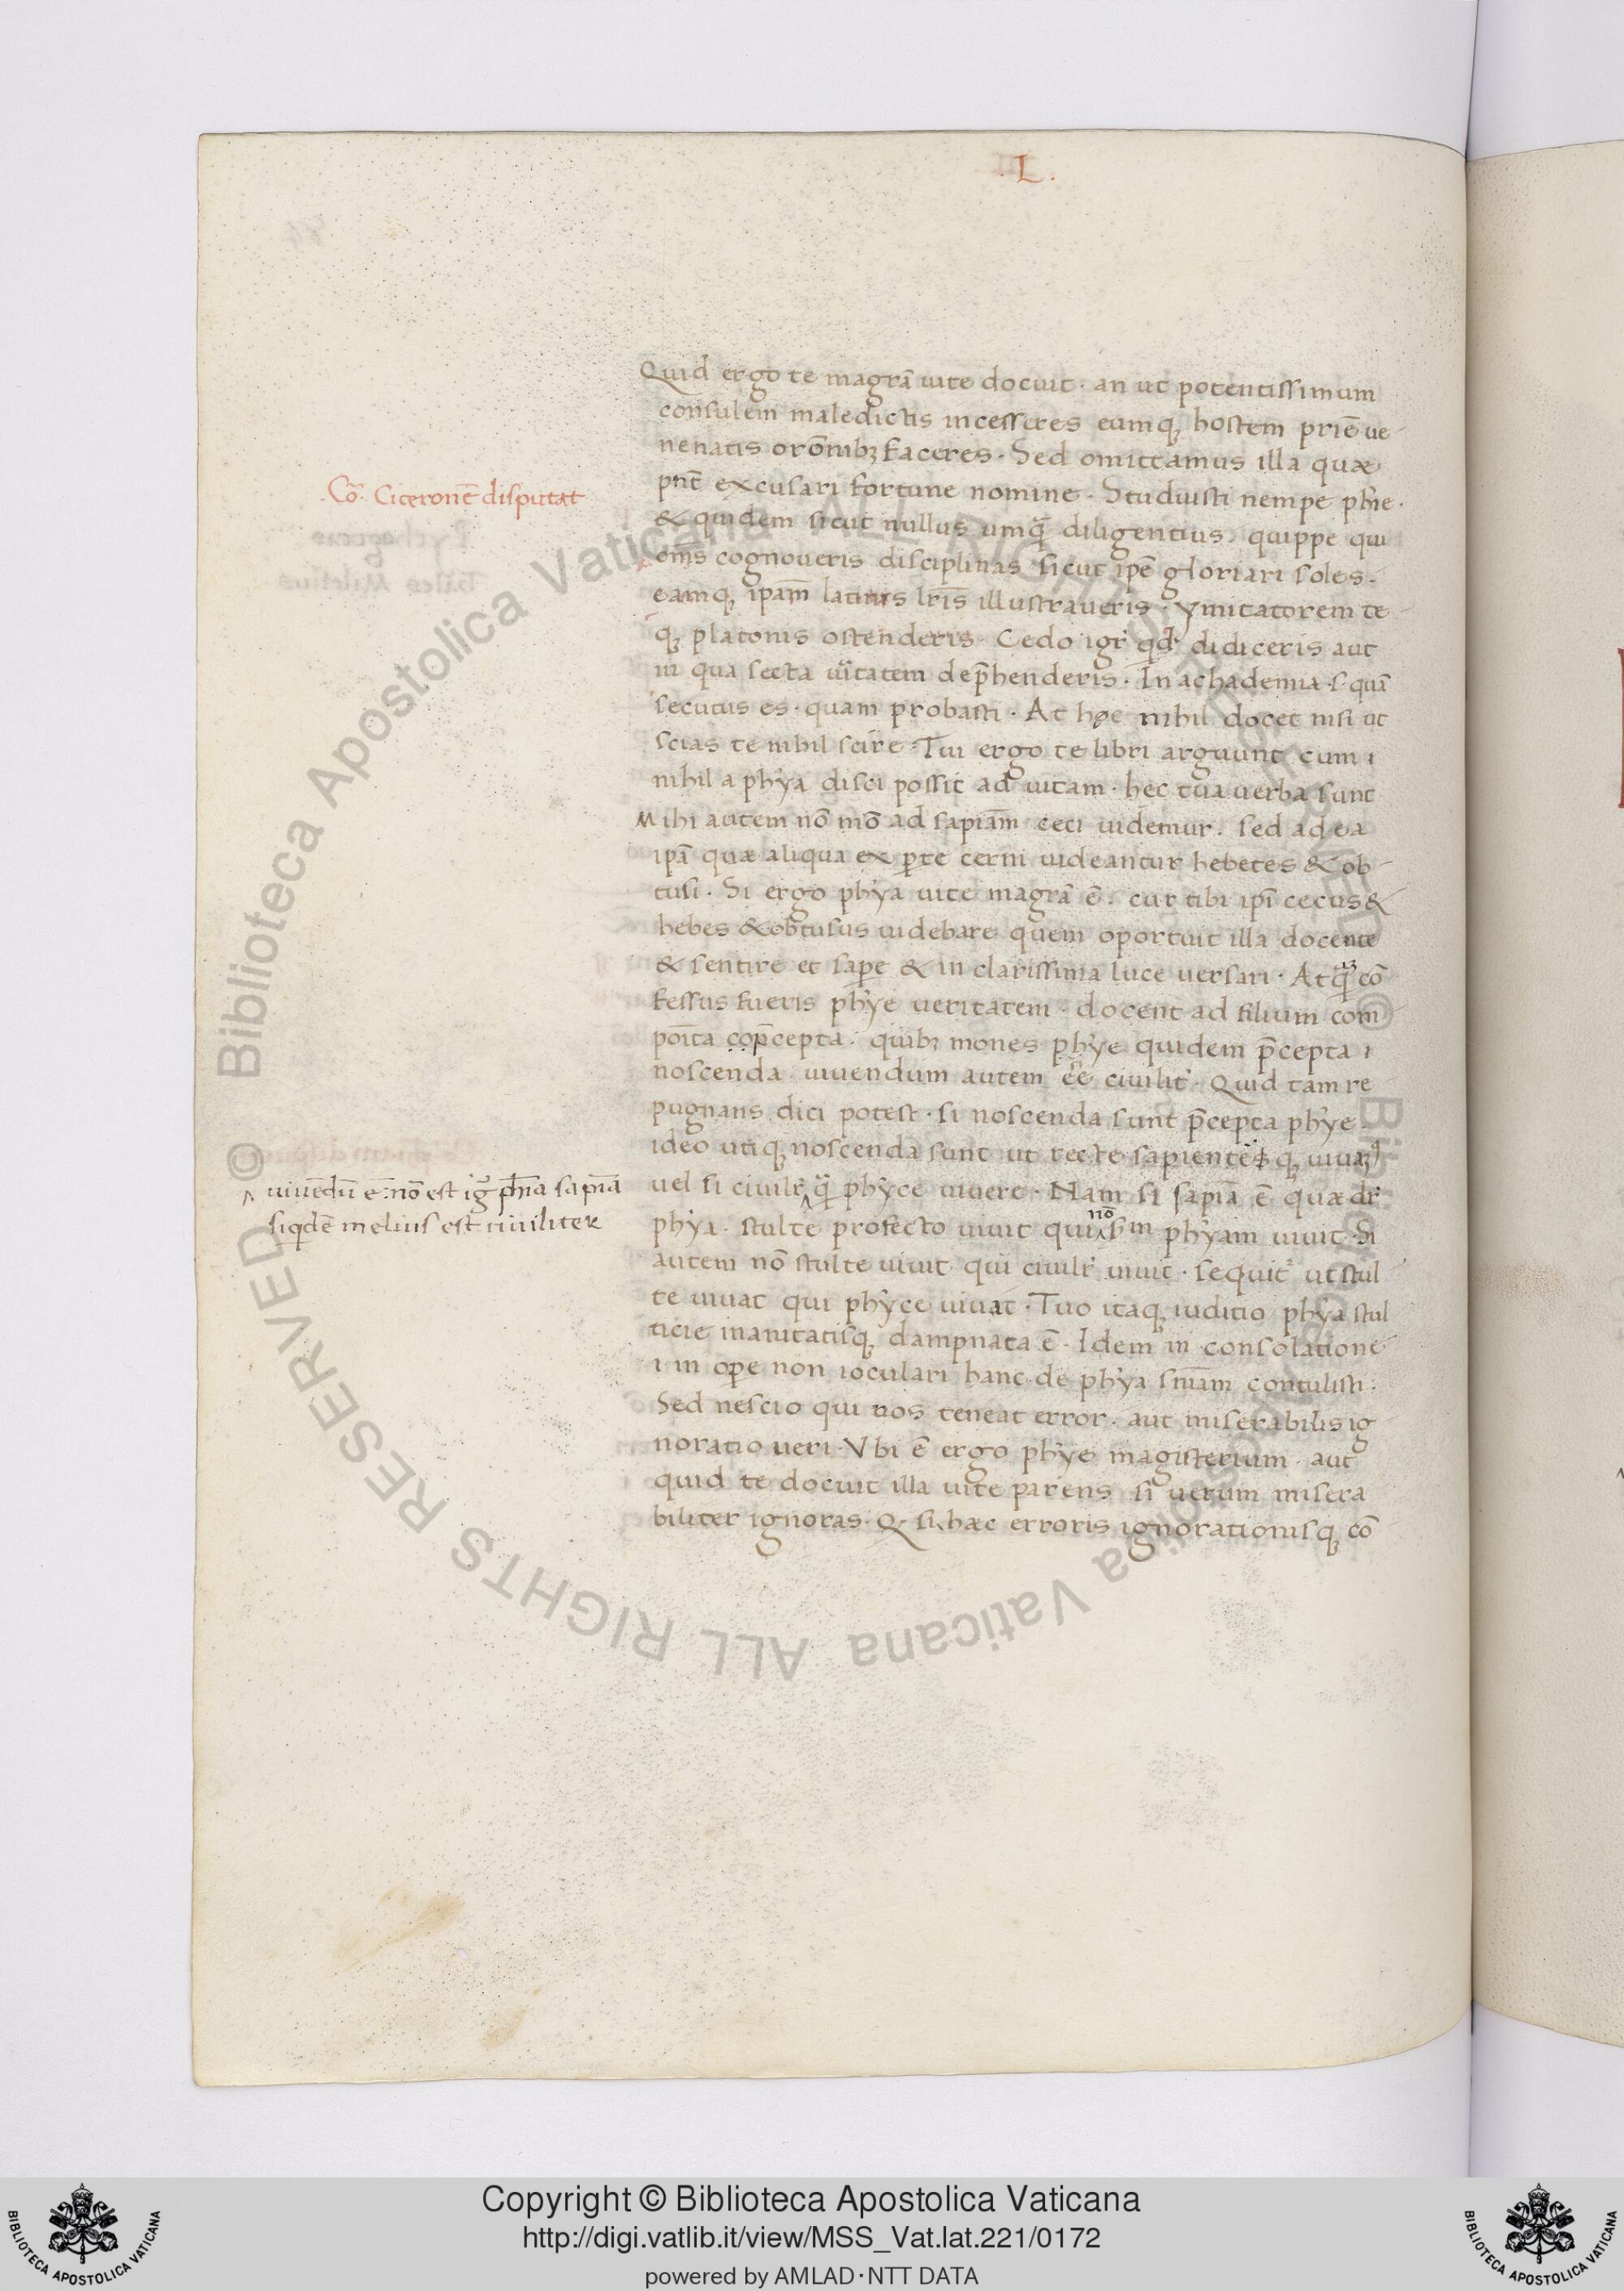 .L.
Quid ergo te magrā uite docuit · an ut potentissimum
consulem maledictis incesseres eumq; hostem priē ue
nenatis orōnibꝫ faceres · Sed omittamus illa quæ
pn̄t excusari fortune nomine · Studuisti nempe phie ·
.Cō. Ciceronē disputat
& quidem sicut nullus umq̄ diligentius, quippe qui
oms̄ cognoueris disciplinas sicut ipē gloriari soles ·
eamq; ipam̄ latinis lrīs illustraueris · ymitatorem te
q; platonis ostenderis · Cedo igr̄ qd didiceris aut
in qua secta uītatem dep̄henderis · In achademia · s · quā
secutus es · quam probasti · At hec nihil docet nisi ut
scias te nihil scire · Tui ergo te libri arguunt cum i
nihil a phya disci possit ad uitam · hec tua uerba sunt
Mihi autem nō mō ad sapiam̄ ceci uidemur · sed ad ea
ipā quæ aliqua ex pte cerni uideantur hebetes & ob
tusi · Si ergo phya uite magrā ē · cur tibi ipī cecus &
hebes & obtusus uidebare quem oportuit illa docente
& sentire et sape & in clarissima luce uersari · At q̄ cō
fessus fueris phye ueritatem · docent ad filium com
poīta cop̄cepta · quibꝫ mones phye quidem p̄cepta i
noscenda · uiuendum autem ēe ciuilit · Quid tam re
pugnans dici potest · si noscenda sunt p̄cepta phye ·
ideo utiq; noscenda sunt ut recte sapienter q; uiuaꝫ
^ uiuēdū ē: nō est ig phīa sapiā
siqdē melius est ciuiliter
uel si ciuilr ^ q̄ phyce uiuere · Nam si sapiā ē quæ dr
phya · stulte profecto uiuit qui nō sm phyam uiuit · Si
autem nō stulte uiuit qui ciuilr uiuit · sequit ut stul
te uiuat qui phyce uiuat · Tuo itaq; iuditio phya stul
ticie inanitatisq; dampnata ē · Idem in consolatione
i in ope non ioculari hanc de phya snīam contulisti ·
Sed nescio qui nos teneat error · aut miserabilis ig
noratio ueri · Vbi ē ergo phye magisterium · aut
quid te docuit illa uite parens si uerum misera
biliter ignoras · Q · si hæc erroris ignorationisq; cō
© Biblioteca Apostolica Vaticana ALL RIGHTS RESERVED
Copyright © Biblioteca Apostolica Vaticana
http://digi.vatlib.it/view/MSS_Vat.lat.221/0172
powered by AMLAD·NTT DATA
BIBLIOTECA APOSTOLICA VATICANA
BIBLIOTECA APOSTOLICA VATICANA